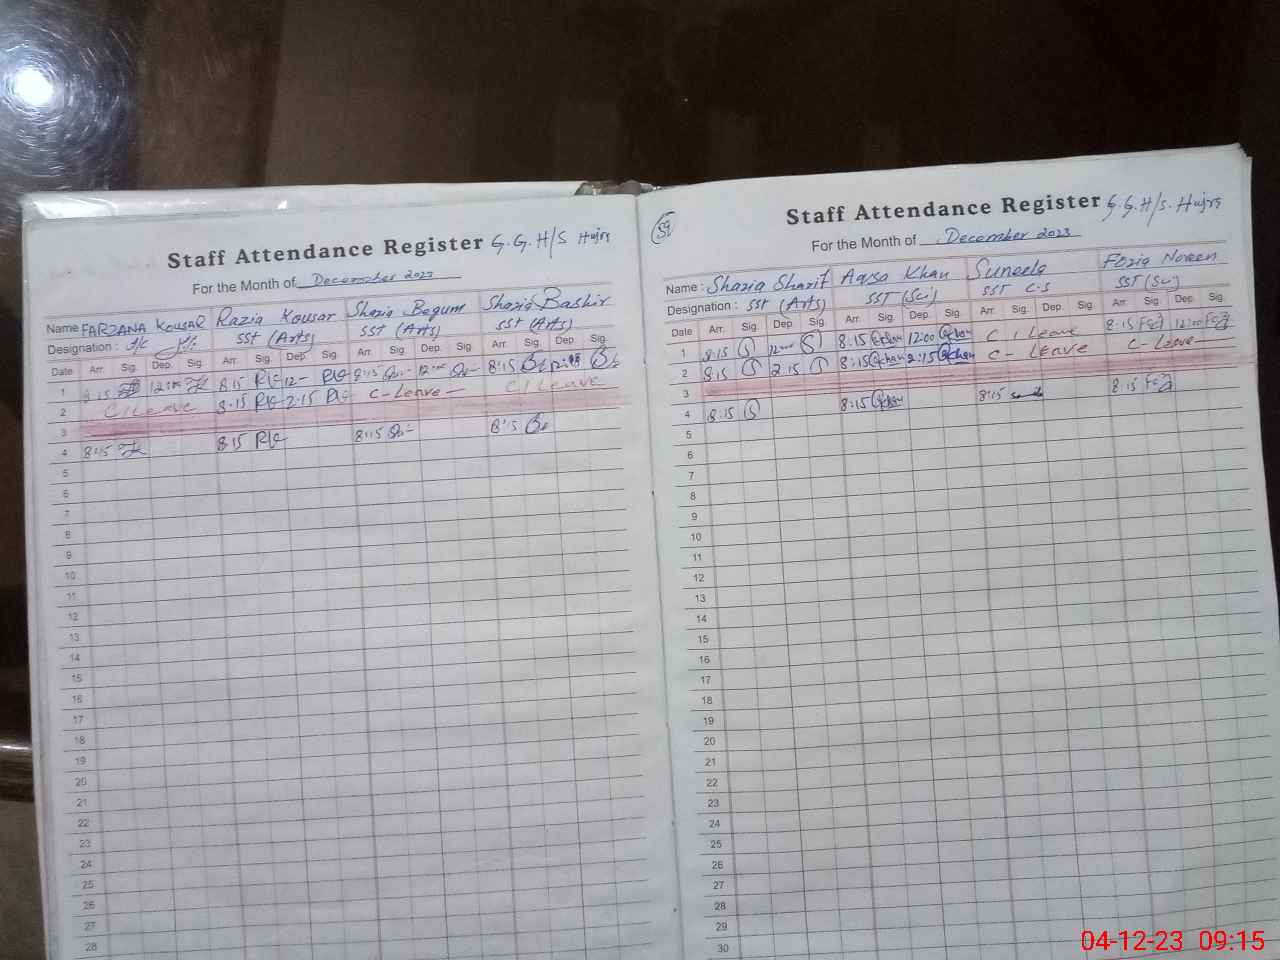 Staff Attendance Register G.G.H/S Hajra
For the Month of December 2023
Name FARZANA KOUSAR Razia Kousar Shazia Begum Shazia Bashir
Designation : I/c SST (Arts) SST (Arts) SST (Arts)
Date Arr. Sig. Dep. Sig. Arr. Sig. Dep. Sig. Arr. Sig. Dep. Sig. Arr. Sig. Dep. Sig.
1 8:15 12:00 8:15 RK 12- RK 8:15 12:00 8:15 12:00
2 C/Leave 8:15 RK 2:15 RK C-Leave C/Leave
3
4 8:15 8:15 RK 8:15 8:15
5
6
7
8
9
10
11
12
13
14
15
16
17
18
19
20
21
22
23
24
25
26
27
28
59
Staff Attendance Register G.G.H/S. Hajra
For the Month of December 2023
Name : Shazia Sharif Aqsa Khan Suneela Fozia Noreen
Designation : SST (Arts) SST (Sci) SST C.S SST (Sci)
Date Arr. Sig. Dep. Sig. Arr. Sig. Dep. Sig. Arr. Sig. Dep. Sig. Arr. Sig. Dep. Sig.
1 8:15 S 12:00 S 8:15 Qkhan 12:00 Qkhan C/Leave 8:15 12:00
2 8:15 S 2:15 S 8:15 Qkhan 2:15 Qkhan C-Leave C-Leave
3
4 8:15 S 8:15 Qkhan 8:15 8:15
5
6
7
8
9
10
11
12
13
14
15
16
17
18
19
20
21
22
23
24
25
26
27
28
29
30
04-12-23 09:15